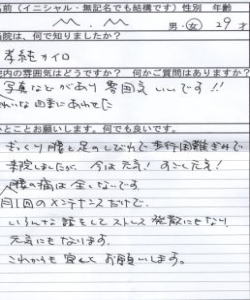 名前（イニシャル・無記名でも結構です）性別　年齢
M.M　男・女　29才
当院は、何で知りましたか？
カイロ
院内の雰囲気はどうですか？　何かご質問はありますか？
写真などがあり　雰囲気いいです!!
ひとことお願いします。何でも良いです。
ぎっくり腰と足のしびれで歩行困難で
来院しましたが、今は元気！すごし元気！
腰の痛は全くないです。
月1回のメンテナンスだけで、
いろんな話をして ストレス発散にもなり
元気にもなります。
これからも宜しくお願いします。